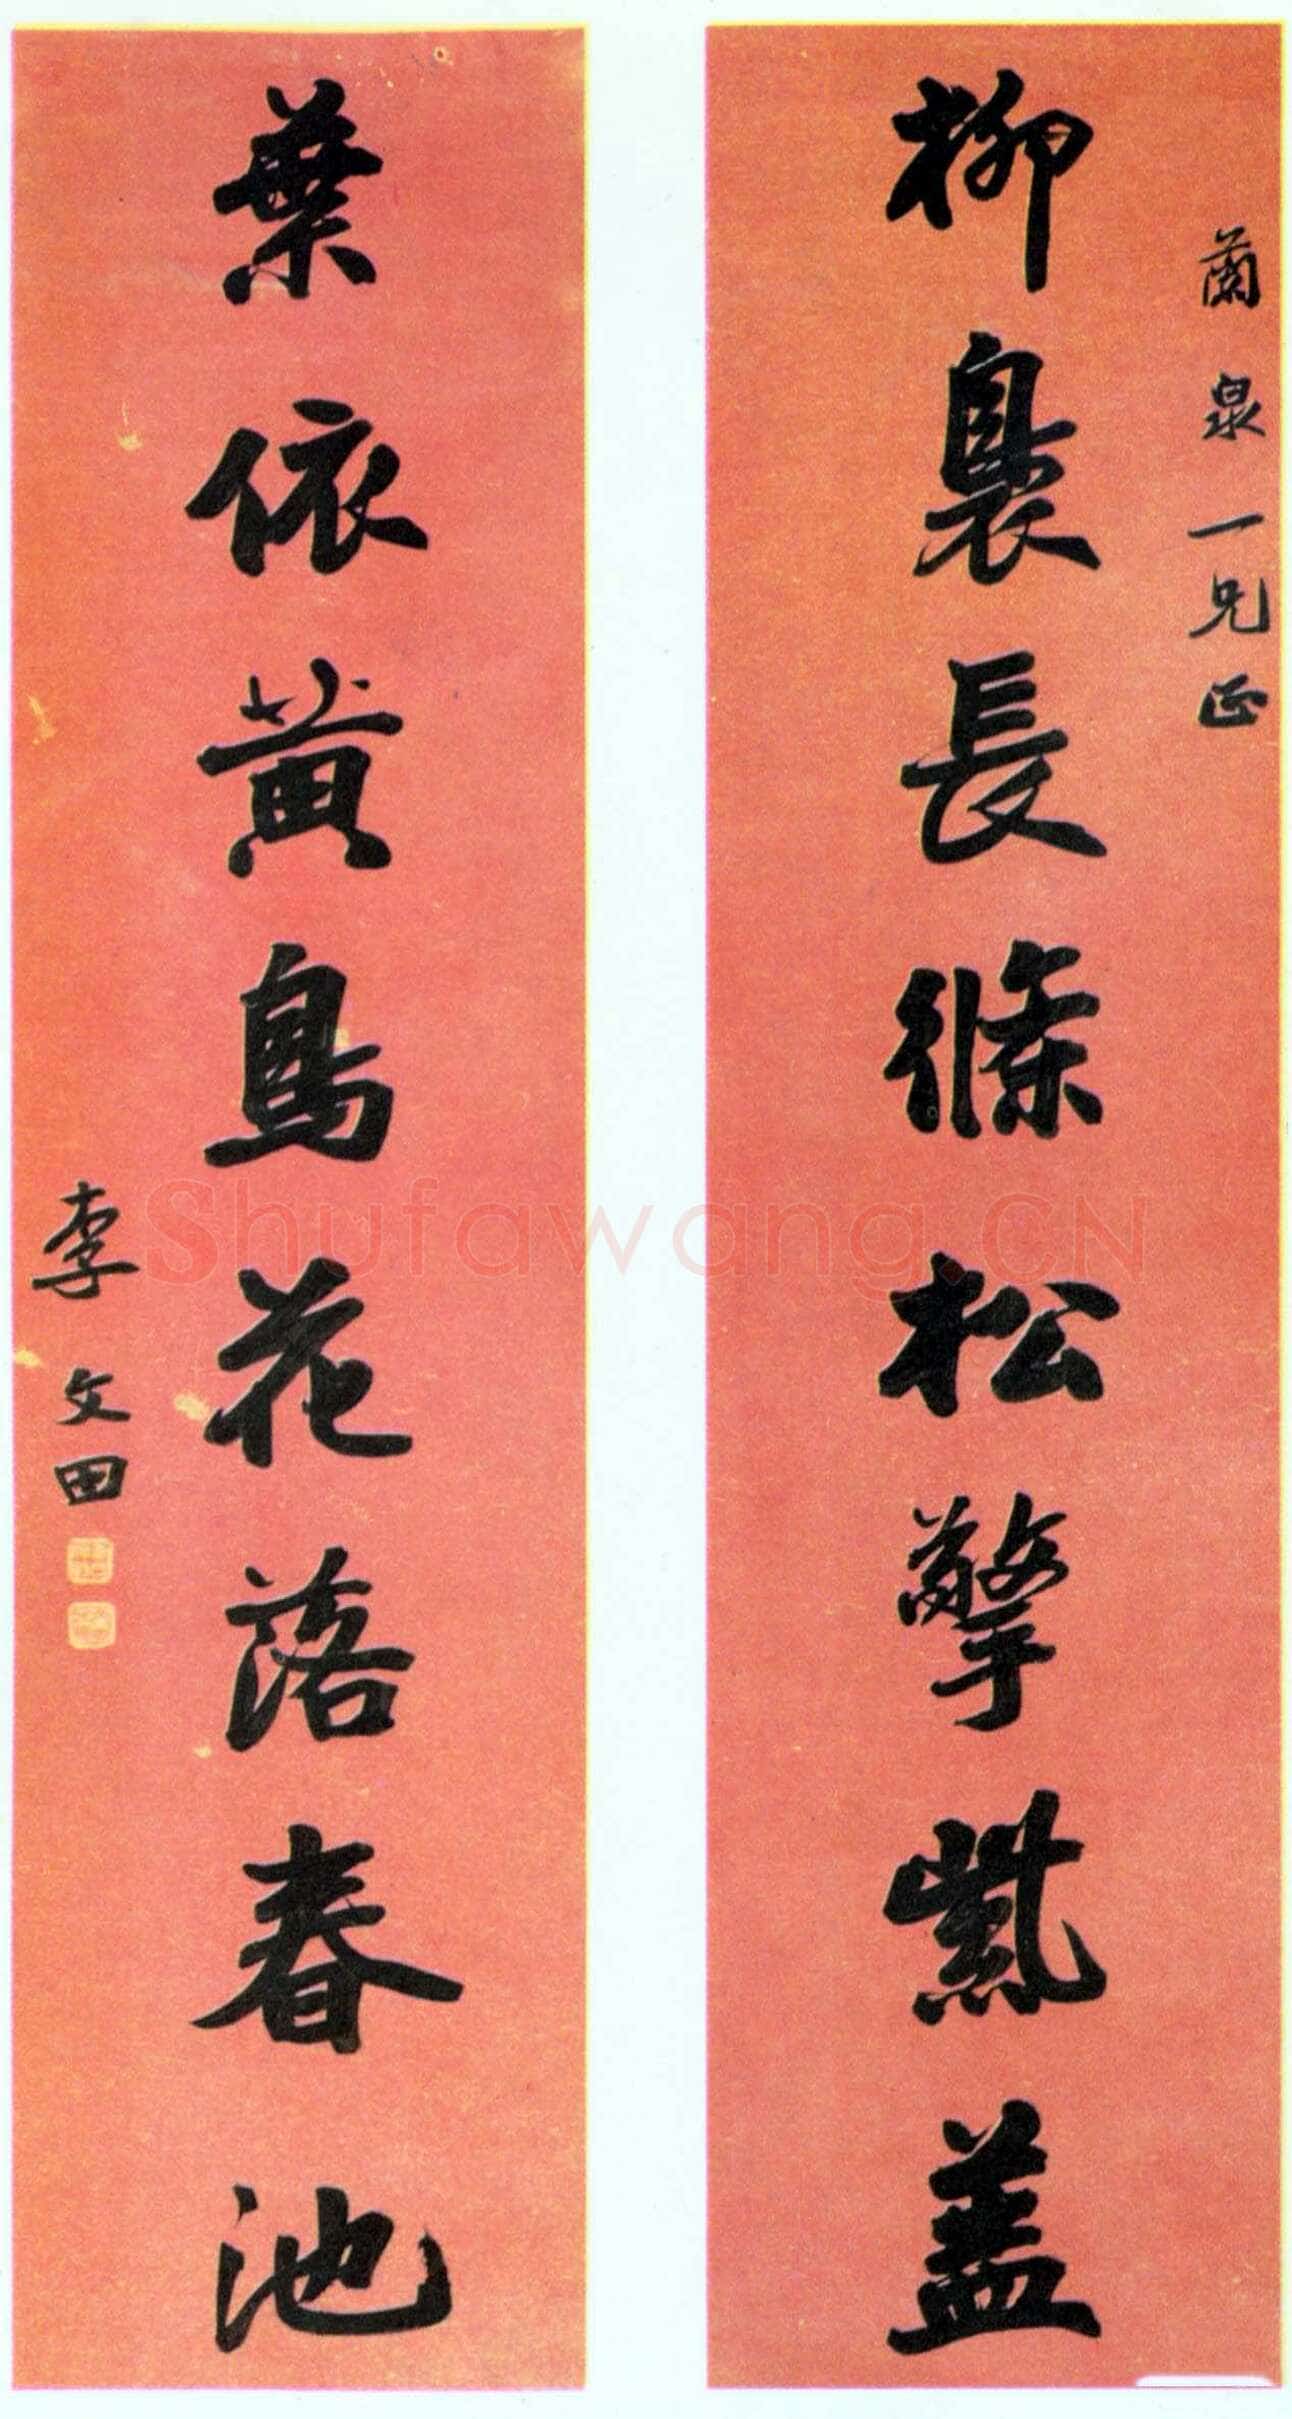 蘭泉一兄正
柳裊長條松擎紫盖
葉依黄鳥花落春池
李文田
Shufawang.CN